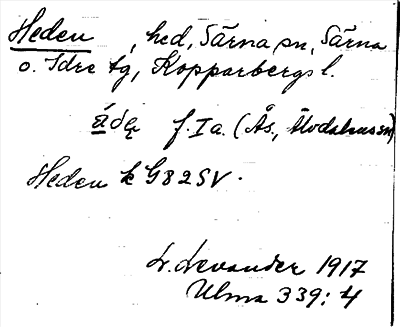 Heden, hed, Särna sn, Särna
o. Idre tg, Kopparbergs l.
f. Ia. (Ås.,
Heden k G82SV.
L. Levander 1917
Ulma 339:4